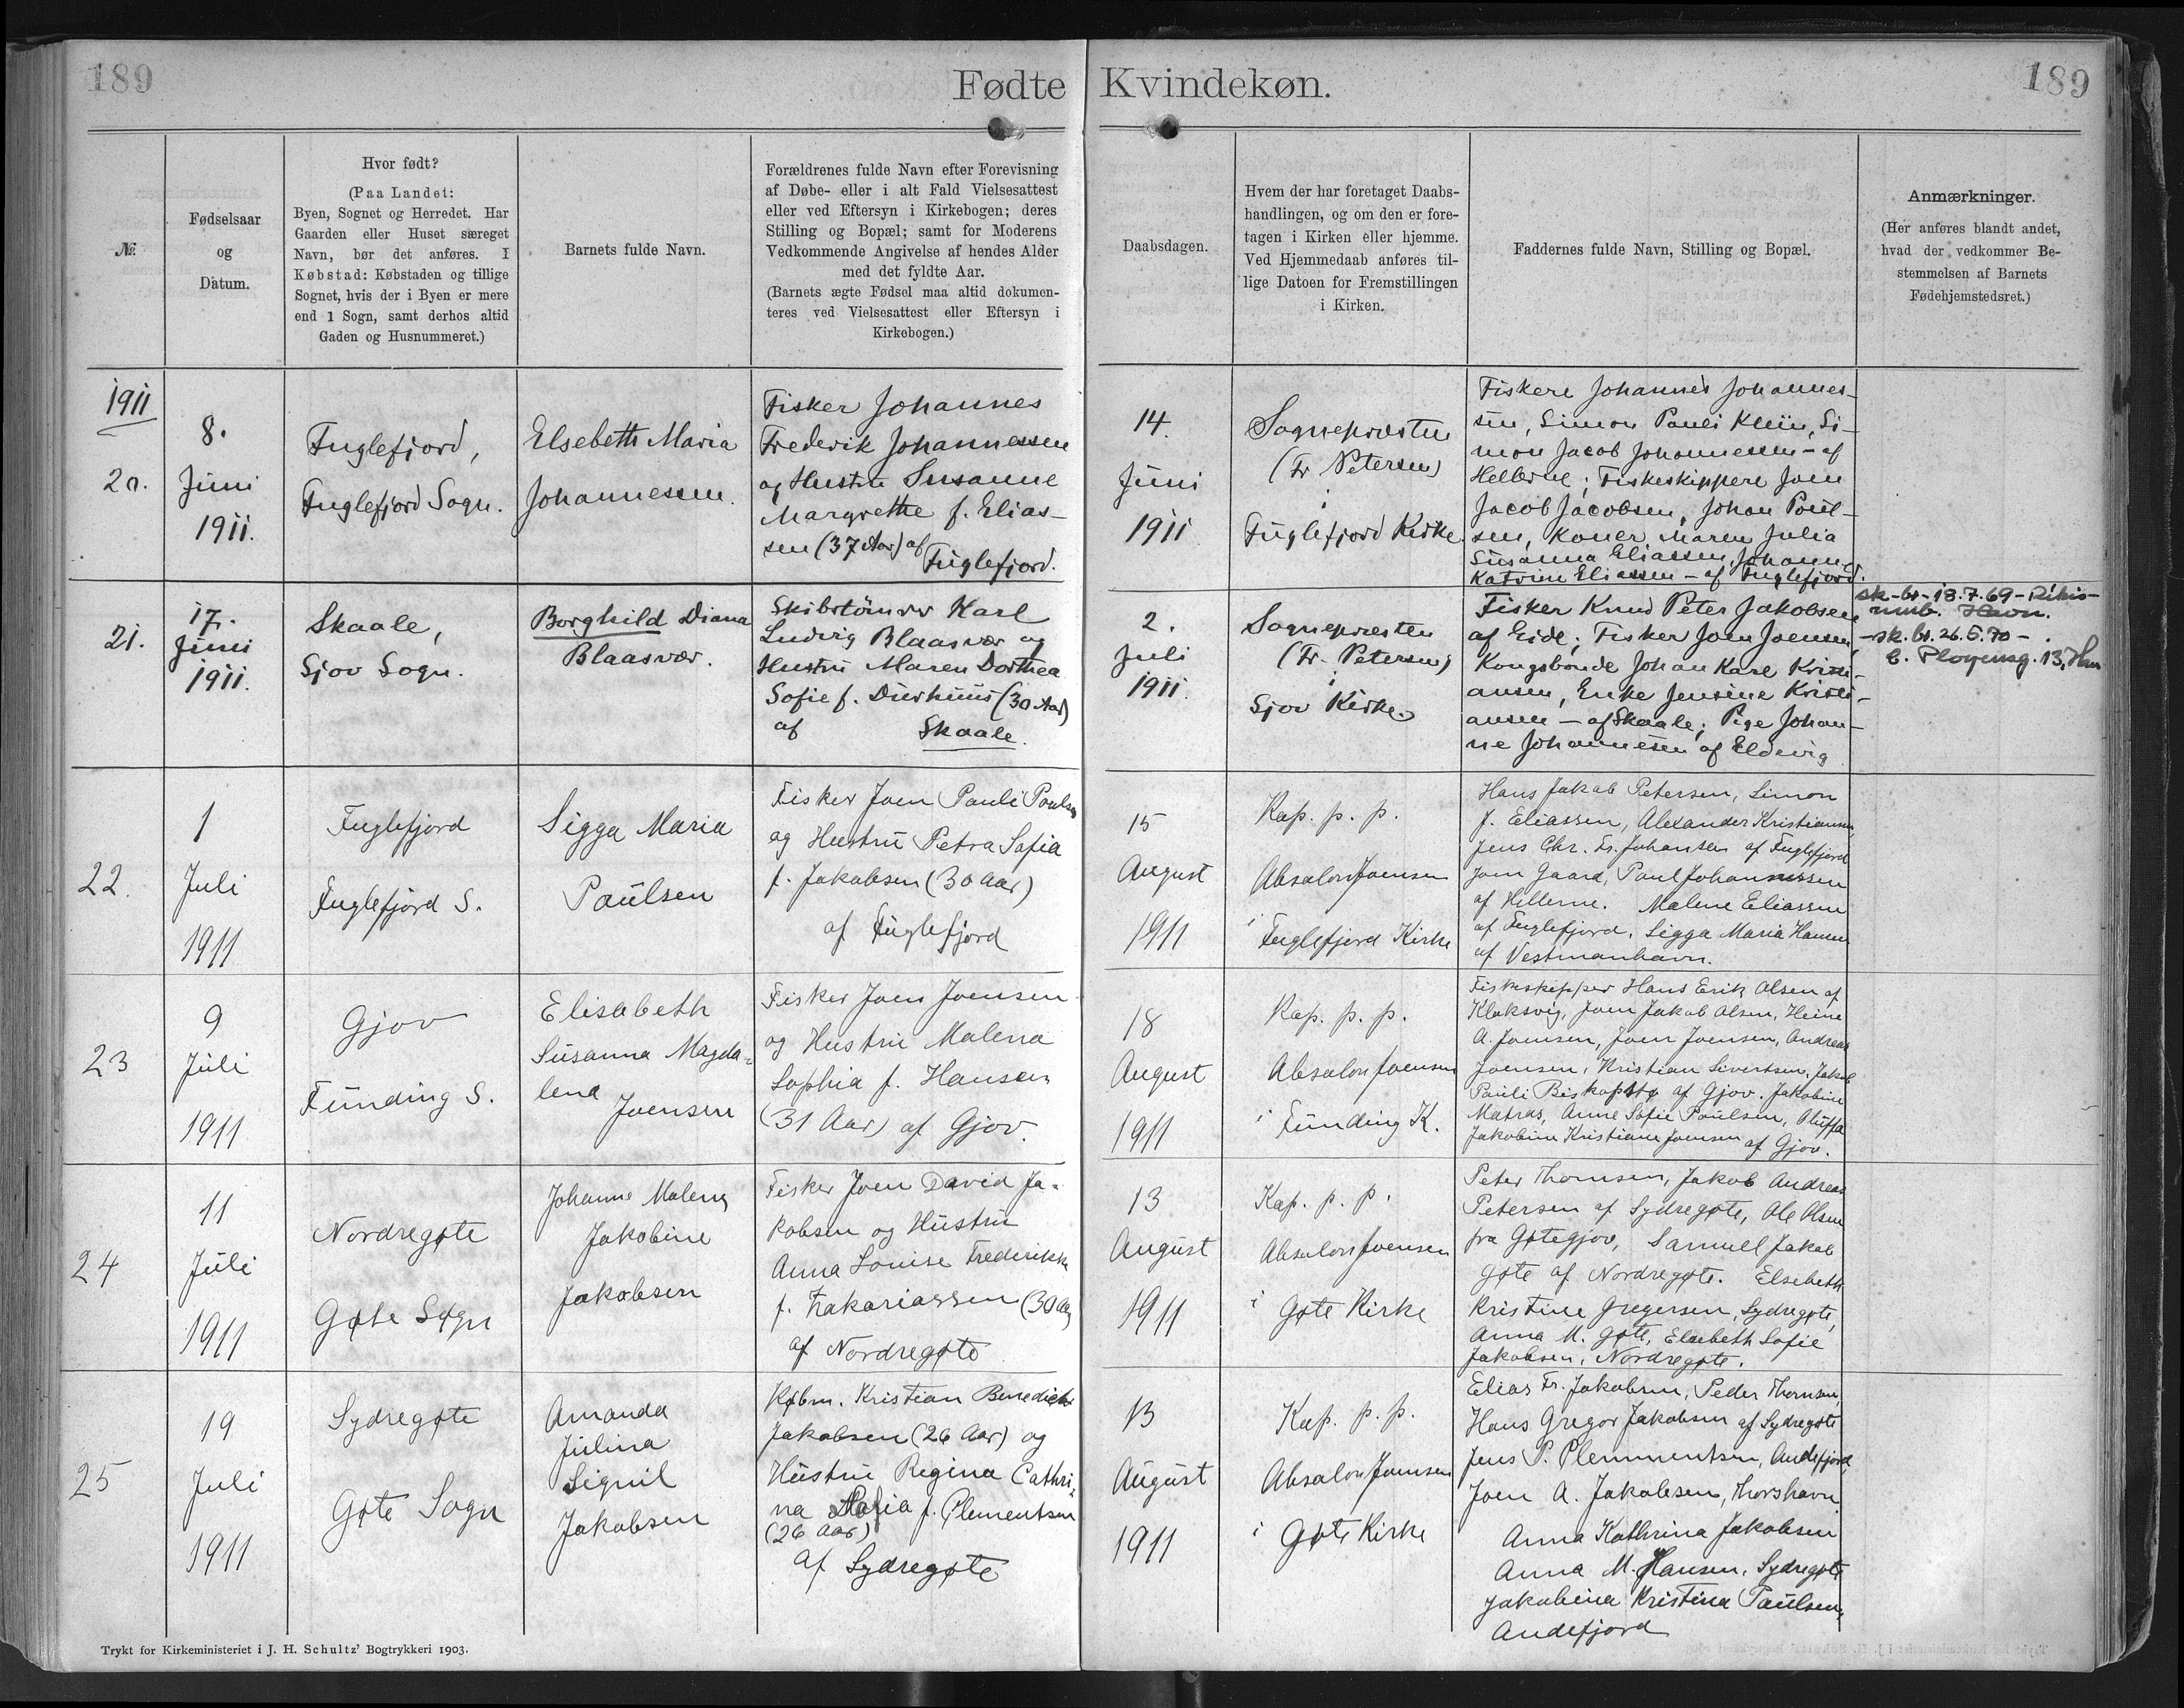 189
Fødte
Kvindekøn.
189
№
Fødselsaar
og
Datum.
Hvor født?
(Paa Landet:
Byen, Sognet og Herredet. Har
Gaarden eller Huset særeget
Navn, bør det anføres. I
Købstad: Købstaden og tillige
Sognet, hvis der i Byen er mere
end 1 Sogn, samt derhos altid
Gaden og Husnummeret.)
Barnets fulde Navn.
Forældrenes fulde Navn efter Forevisning
af Døbe- eller i alt Fald Vielsesattest
eller ved Eftersyn i Kirkebogen; deres
Stilling og Bopæl; samt for Moderens
Vedkommende Angivelse af hendes Alder
med det fyldte Aar.
(Barnets ægte Fødsel maa altid dokumen-
teres ved Vielsesattest eller Eftersyn i
Kirkebogen.)
Daabsdagen.
Hvem der har foretaget Daabs-
handlingen, og om den er fore-
tagen i Kirken eller hjemme.
Ved Hjemmedaab anføres til-
lige Datoen for Fremstillingen
i Kirken.
Faddernes fulde Navn, Stilling og Bopæl.
Anmærkninger.
(Her anføres blandt andet,
hvad der vedkommer Be-
stemmelsen af Barnets
Fødehjemstedsret.)
1911
20.
8.
Juni
1911.
Fuglefjord,
Fuglefjord Sogn.
Elsebeth Maria
Johannessen.
Fisker Johannes
Frederik Johannessen
og Hustru Susanne
Margrethe f. Elias-
sen (37 Aar) af
Fuglefjord.
14.
Juni
1911
Sognepræsten
(Fr. Petersen)
i
Fuglefjord Kirke.
Fiskere Johannes Johannes-
sen, Simon Pauli Klein, Si-
mon Jacob Johannessen - af
Hellerne; Fiskeskippere Joen
Jacob Jacobsen, Johan Poul-
sen, Koner Maren Julia
Susanna Eliassen, Johanne
Katrine Eliassen - af Fuglefjord.
21.
17.
Juni
1911.
Skaale,
Sjov Sogn.
Borghild Diana
Blaasvær.
Skibstømrer Karl
Ludvig Blaasvær og
Hustru Maren Dorthea
Sofie f. Durhuus (30 Aar)
af Skaale.
2.
Juli
1911.
Sognepræsten
(Fr. Petersen)
i
Sjov Kirke.
Fisker Knud Peter Jakobsen
af Eide; Fisker Joen Joensen,
Kongsbonde Johan Karl Kristi-
ansen, Enke Jensine Kristi-
ansen - af Skaale; Pige Johan-
ne Johannesen af Eldevig
sk-br-18.7.69-Rikis-
umb. Havn.
-sk. br. 26.5.70-
13, Hvn
22.
1
Juli
1911
Fuglefjord
Fuglefjord S.
Sigga Maria
Paulsen
Fisker Joen Pauli Poulsen
og Hustru Petra Sofia
f. Jakobsen (30 Aar)
af Fuglefjord
15
August
1911
Kap. p. p.
Absalon Joensen
i
Fuglefjord Kirke
Hans Jakob Petersen, Simon
J. Eliassen, Alexander Kristiansen,
Jens Chr. Fr. Johansen af Fuglefjord
Joen Gaard, Paul Johannessen
af Hellerne. Malene Eliassen
af Fuglefjord, Sigga Maria Hansen
af Vestmanhavn.
23
9
Juli
1911
Gjov
Funding S.
Elisabeth
Susanna Magda-
lena
Joensen
Fisker Joen Joensen
og Hustru Malena
Sophia f. Hansen
(31 Aar) af Gjov.
18
August
1911
Kap. p. p.
Absalon Joensen
i
Funding K.
Fiskeskipper Hans Erik Olsen af
Klaksvig, Joen Jakob Olsen, Heine
A. Joensen, Joen Joensen, Andreas
Joensen, Kristian Sivertsen, Jakob
Pauli Biskopstø af Gjov. Jakobine
Matras, Anne Sofie Paulsen, Oluffa
Jakobine Kristiane Joensen af Gjov.
24
11
Juli
1911
Nordregøte
Gøte Sogn
Johanne Malena
Jakobine
Jakobsen
Fisker Joen David Ja-
kobsen og Hustru
Anna Louise Frederikke
f. Zakariassen (30 Aar)
af Nordregøte
13
August
1911
Kap. p. p.
Absalon Joensen
i
Gøte Kirke
Peter Thomsen, Jakob Andreas
Petersen af Sydregøte, Ole Olsen
fra Gøtegjov, Samuell Jakob
Gøte af Nordregøte. Elsebeth
Kristine Gregersen, Sydregøte,
Anna M. Gøte, Elsebeth Sofie
Jakobsen, Nordregøte.
25
19
Juli
1911
Sydregøte
Gøte Sogn
Amanda
Julina
Signil
Jakobsen
Købm. Kristian Benedict
Jakobsen (26 Aar) og
Hustru Regina Cathri-
na Sofia f. Clementsen
(26 Aar)
af Sydregøte
13
August
1911
Kap. p. p.
Absalon Joensen
i
Gøte Kirke
Elias Fr. Jakobsen, Peder Thomsen,
Hans Gregor Jakobsen af Sydregøte
Jens P. Clemmentsen, Andefjord,
Joen A. Jakobsen, Thorshavn
Anna Kathrina Jakobsen
Anna M. Hansen, Sydregøte
Jakobina Kristina Paulsen,
Andefjord
Trykt for Kirkeministeriet i J. H. Schultz' Bogtrykkeri 1903.